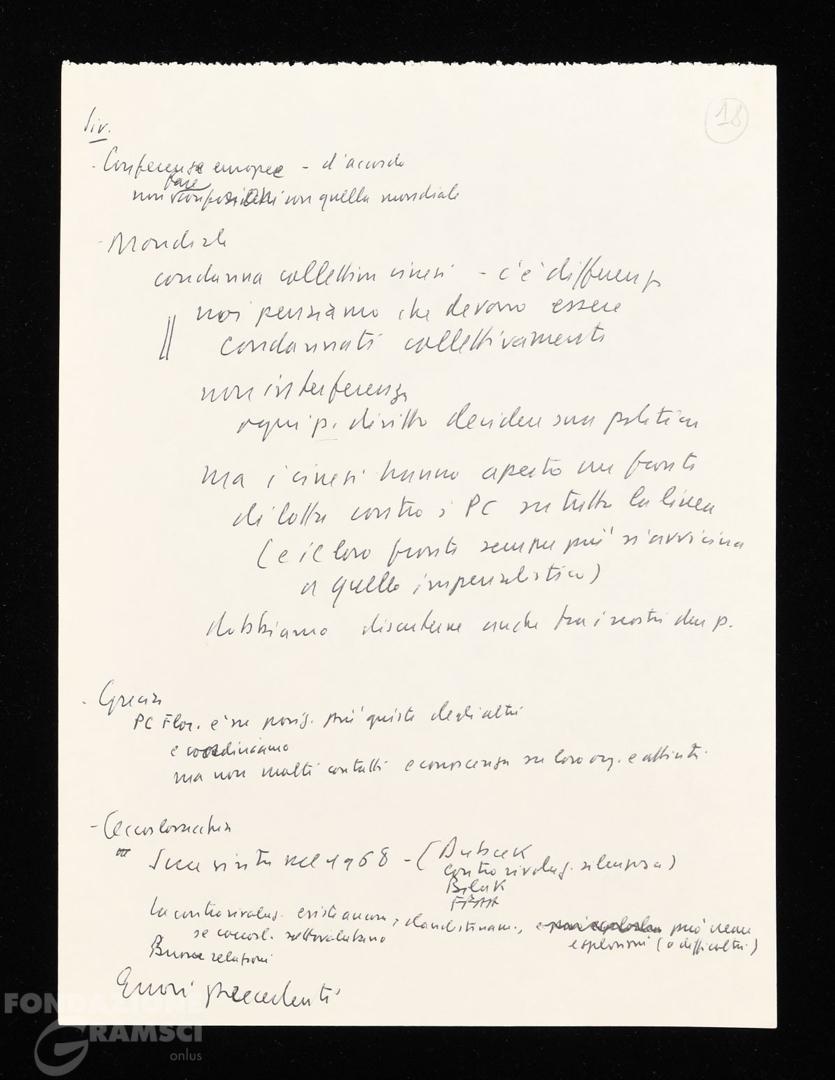 18
- Conferenza europea - d'accordo
fare
non con quella mondiale
- Mondiale
condanna collettiva cinesi - c'è differenza
noi pensiamo che devono essere
condannati collettivamente
non interferenza
ogni p. diritto decidere sua politica
ma i cinesi hanno aperto un fronte
di lotta contro i PC su tutta la linea
(e il loro fronte sempre più s'avvicina
a quello imperialistico)
dobbiamo discuterne anche tra i nostri due p.
- Grecia
PC Flor. è su posiz. più giuste degli altri
e
ma non molti contatti e conoscenza su loro org. e attività.
- Cecoslovacchia
Sua visita nel 1968 - (Dubcek
controrivoluz. silenziosa)
Bilak
La controrivoluz. esiste ancora, clandestinam., e può
se cecosl. sottovalutano
esplosioni (o difficoltà)
Buone relazioni
Errori precedenti
FONDAZIONE
GRAMSCI
onlus